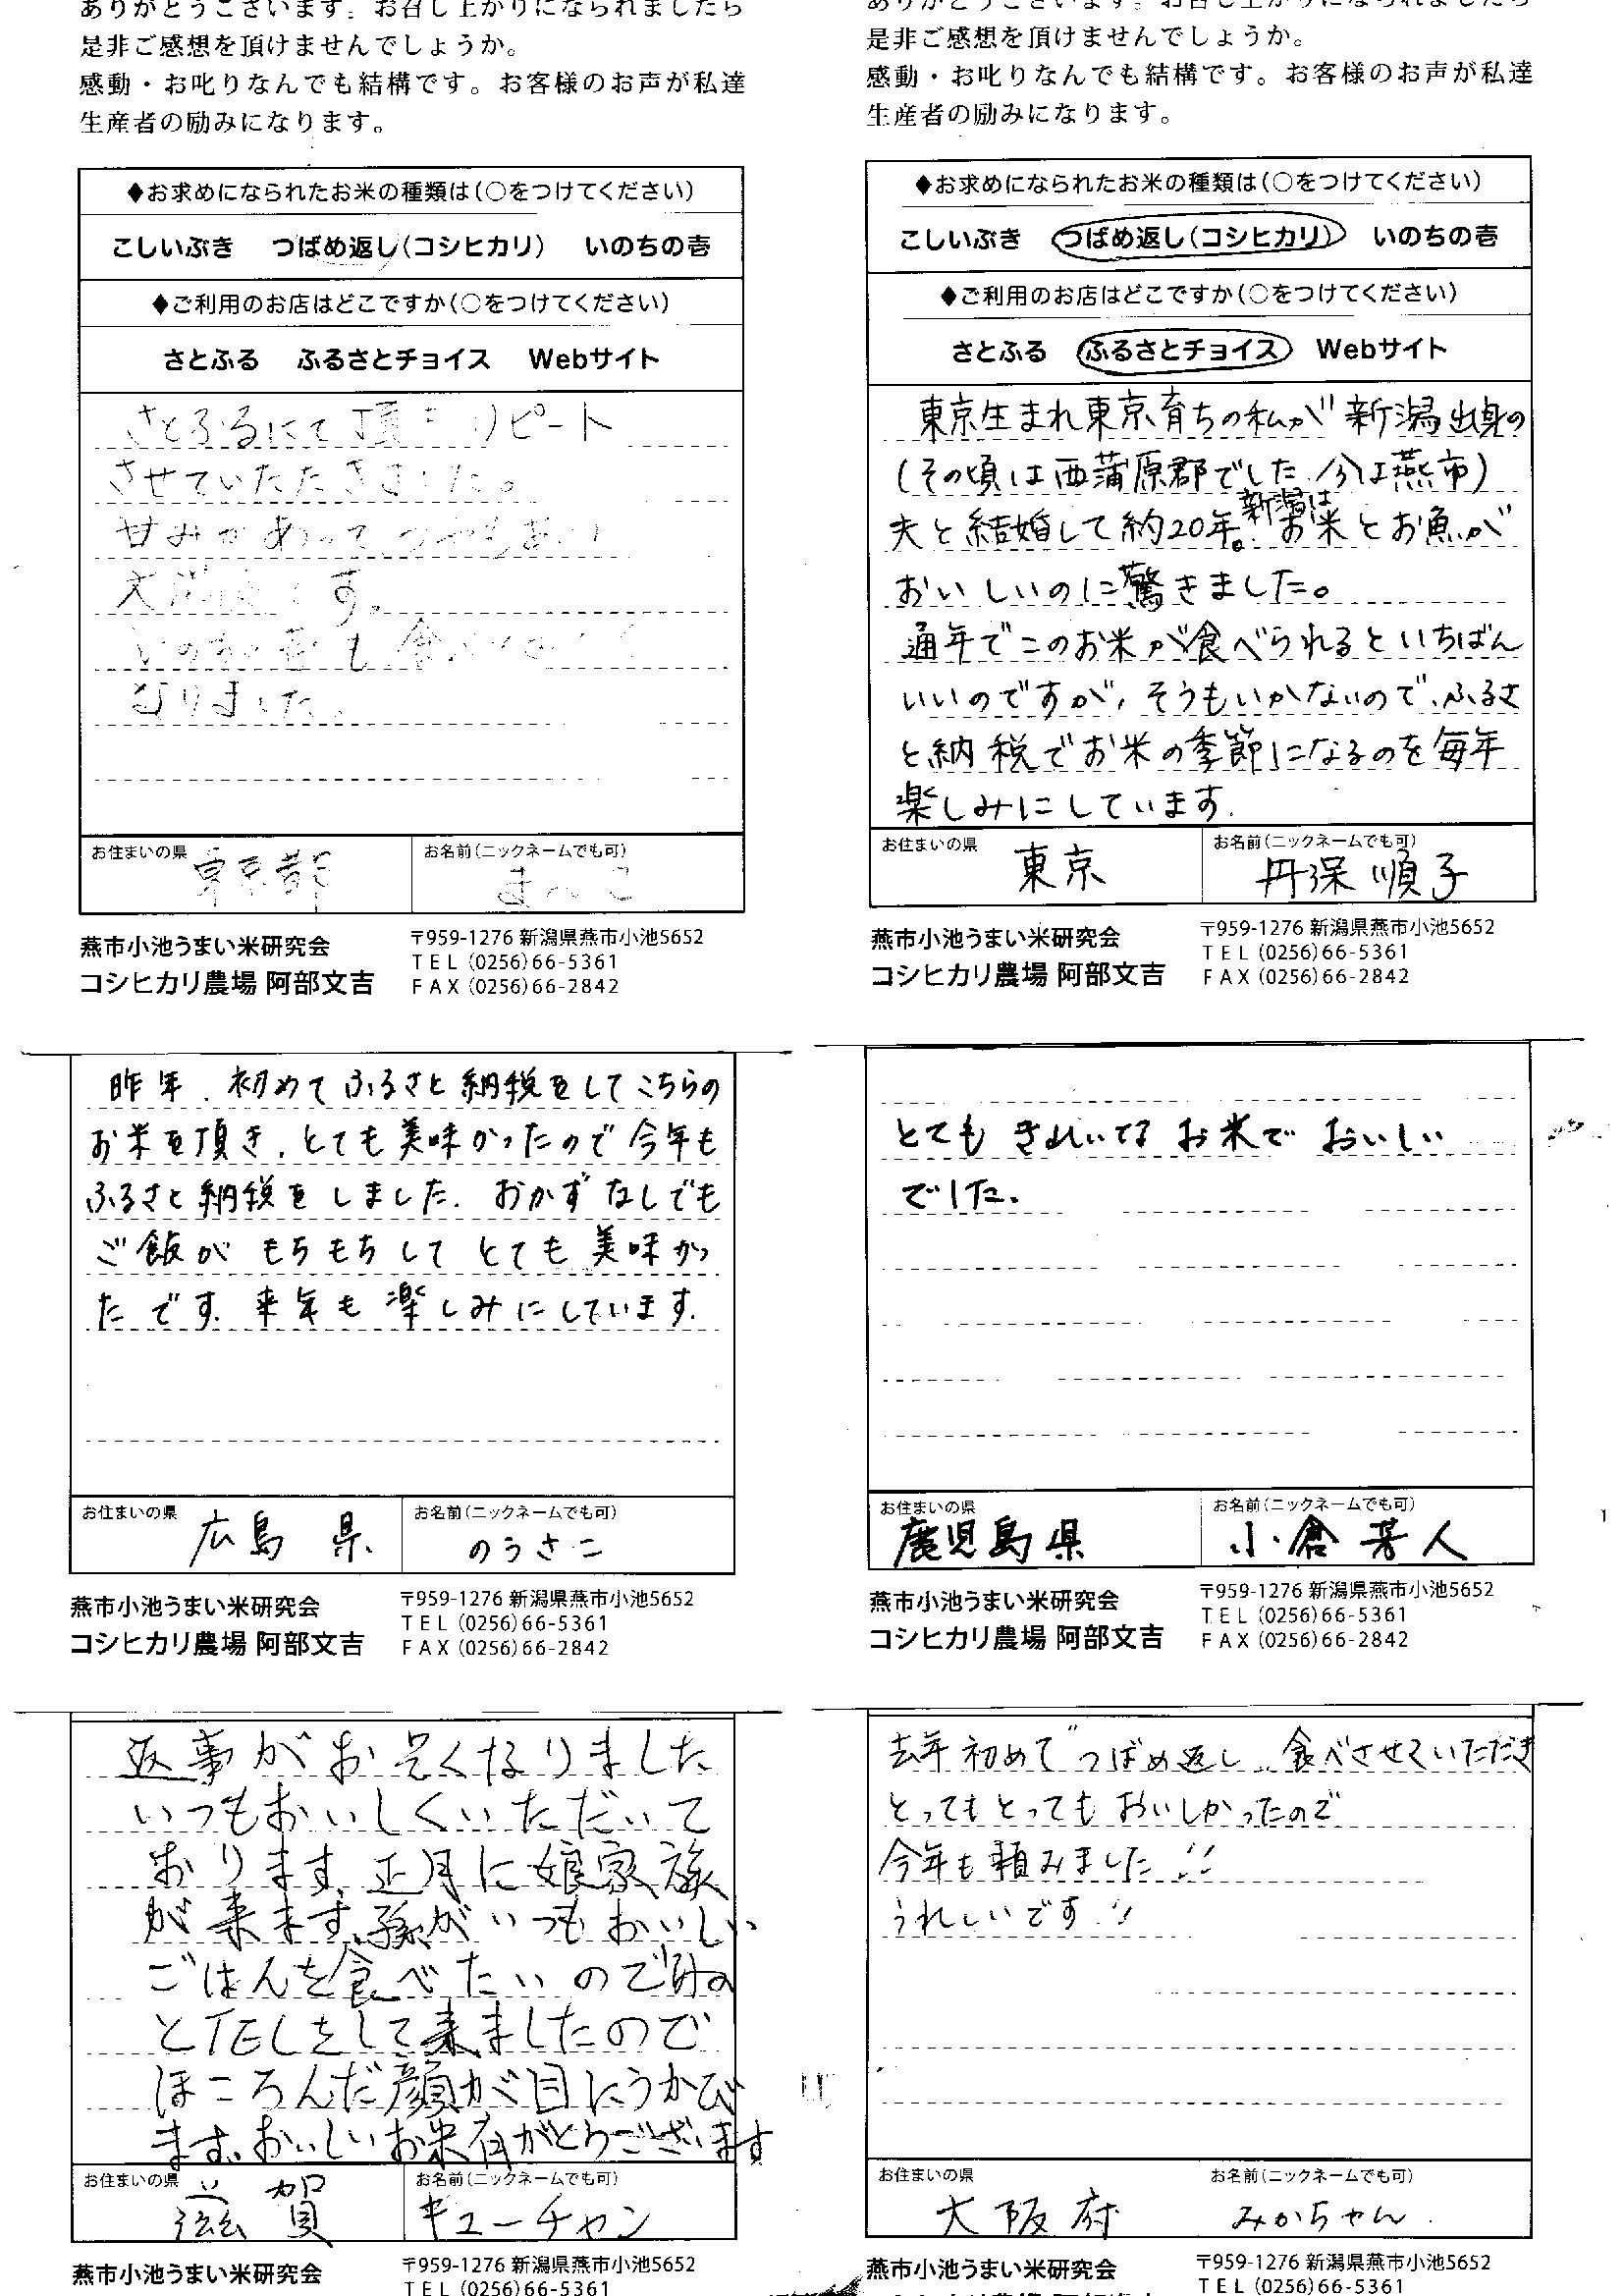 ありがとうございます。お召し上がりになられましたら
是非ご感想を頂けませんでしょうか。
感動・お叱りなんでも結構です。お客様のお声が私達
生産者の励みになります。
◆お求めになられたお米の種類は(○をつけてください)
こしいぶき つばめ返し(コシヒカリ) いのちの壱
◆ご利用のお店はどこですか(○をつけてください)
さとふる ふるさとチョイス Webサイト
さとふるにて頂き リピート
させていただきました。
甘みがあって
す。
も食
なりました。
お住まいの県 東京都 お名前(ニックネームでも可)
燕市小池うまい米研究会
コシヒカリ農場 阿部文吉
〒959-1276 新潟県燕市小池5652
TEL (0256)66-5361
FAX (0256)66-2842
ありがとうございます。お召し上がりになられましたら
是非ご感想を頂けませんでしょうか。
感動・お叱りなんでも結構です。お客様のお声が私達
生産者の励みになります。
◆お求めになられたお米の種類は(○をつけてください)
こしいぶき つばめ返し(コシヒカリ) いのちの壱
◆ご利用のお店はどこですか(○をつけてください)
さとふる ふるさとチョイス Webサイト
東京生まれ東京育ちの私が新潟出身の
(その頃は西蒲原郡でした 今は燕市)
夫と結婚して約20年。新潟はお米とお魚が
おいしいのに驚きました。
通年でこのお米が食べられるといちばん
いいのですが、そうもいかないので、ふるさ
と納税でお米の季節になるのを毎年
楽しみにしています.
お住まいの県 東京 お名前(ニックネームでも可) 丹保 順子
燕市小池うまい米研究会
コシヒカリ農場 阿部文吉
〒959-1276 新潟県燕市小池5652
TEL (0256)66-5361
FAX (0256)66-2842
昨年、初めてふるさと納税をしてこちらの
お米を頂き、とても美味かったので今年も
ふるさと納税をしました. おかずなしでも
ご飯がもちもちしてとても美味かっ
たです. 来年も楽しみにしています.
お住まいの県 広島県 お名前(ニックネームでも可) のうさこ
燕市小池うまい米研究会
コシヒカリ農場 阿部文吉
〒959-1276 新潟県燕市小池5652
TEL (0256)66-5361
FAX (0256)66-2842
とても きれいな お米で おいしい
でした.
お住まいの県 鹿児島県 お名前(ニックネームでも可) 小倉 芳人
燕市小池うまい米研究会
コシヒカリ農場 阿部文吉
〒959-1276 新潟県燕市小池5652
TEL (0256)66-5361
FAX (0256)66-2842
返事がお兄くなりました
いつもおいしくいただいて
おります、正月に娘家族
が来ます、孫がいつもおいしい
ごはんを食べたいので
とTELをして来ましたので
ほころんだ顔が目にうかび
ます、おいしいお米有がとうございます
お住まいの県 滋賀 お名前(ニックネームでも可) キューチャン
燕市小池うまい米研究会
〒959-1276 新潟県燕市小池5652
TEL (0256)66-5361
去年初めて"つばめ返し"食べさせていただき
とってもとってもおいしかったので
今年も頼みました!!
うれしいです!!
お住まいの県 大阪府 お名前(ニックネームでも可) みかちゃん
燕市小池うまい米研究会
〒959-1276 新潟県燕市小池5652
TEL (0256)66-5361